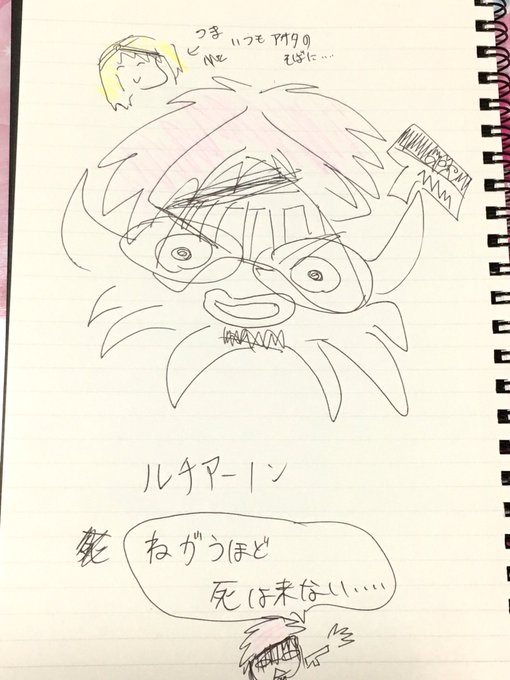 つま
いつもアナタの
そばに....
ルチアーノン
ねがうほど
死は来ない.....